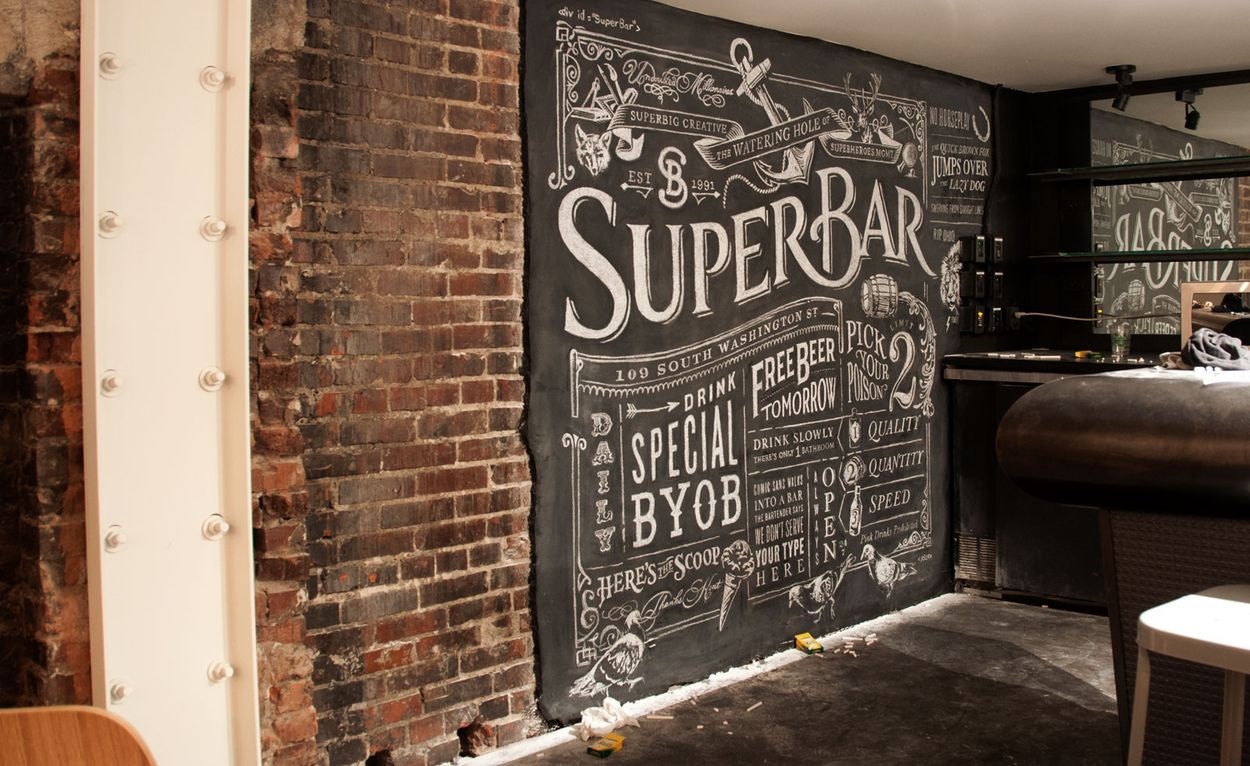 <div id="SuperBar">
Undoubted Millionaires
SUPERBIG CREATIVE
THE WATERING HOLE OF
SUPERHEROES MGMT.
EST SB 1991
SUPERBAR
109 SOUTH WASHINGTON ST
DAILY
DRINK
SPECIAL
BYOB
FREE BEER
TOMORROW
DRINK SLOWLY
THERE'S ONLY 1 BATHROOM
COMIC SANS WALKS
INTO A BAR
THE BARTENDER SAYS
WE DON'T SERVE
YOUR TYPE
HERE
ALWAYS
OPEN
LIMIT
PICK
YOUR
POISON
2
1 QUALITY
2 QUANTITY
SPEED
Pink Drinks Prohibited
HERE'S THE SCOOP
Thanks Kent
NO HORSEPLAY
THE QUICK BROWN FOX
JUMPS OVER
THE LAZY DOG
RIP OHNO